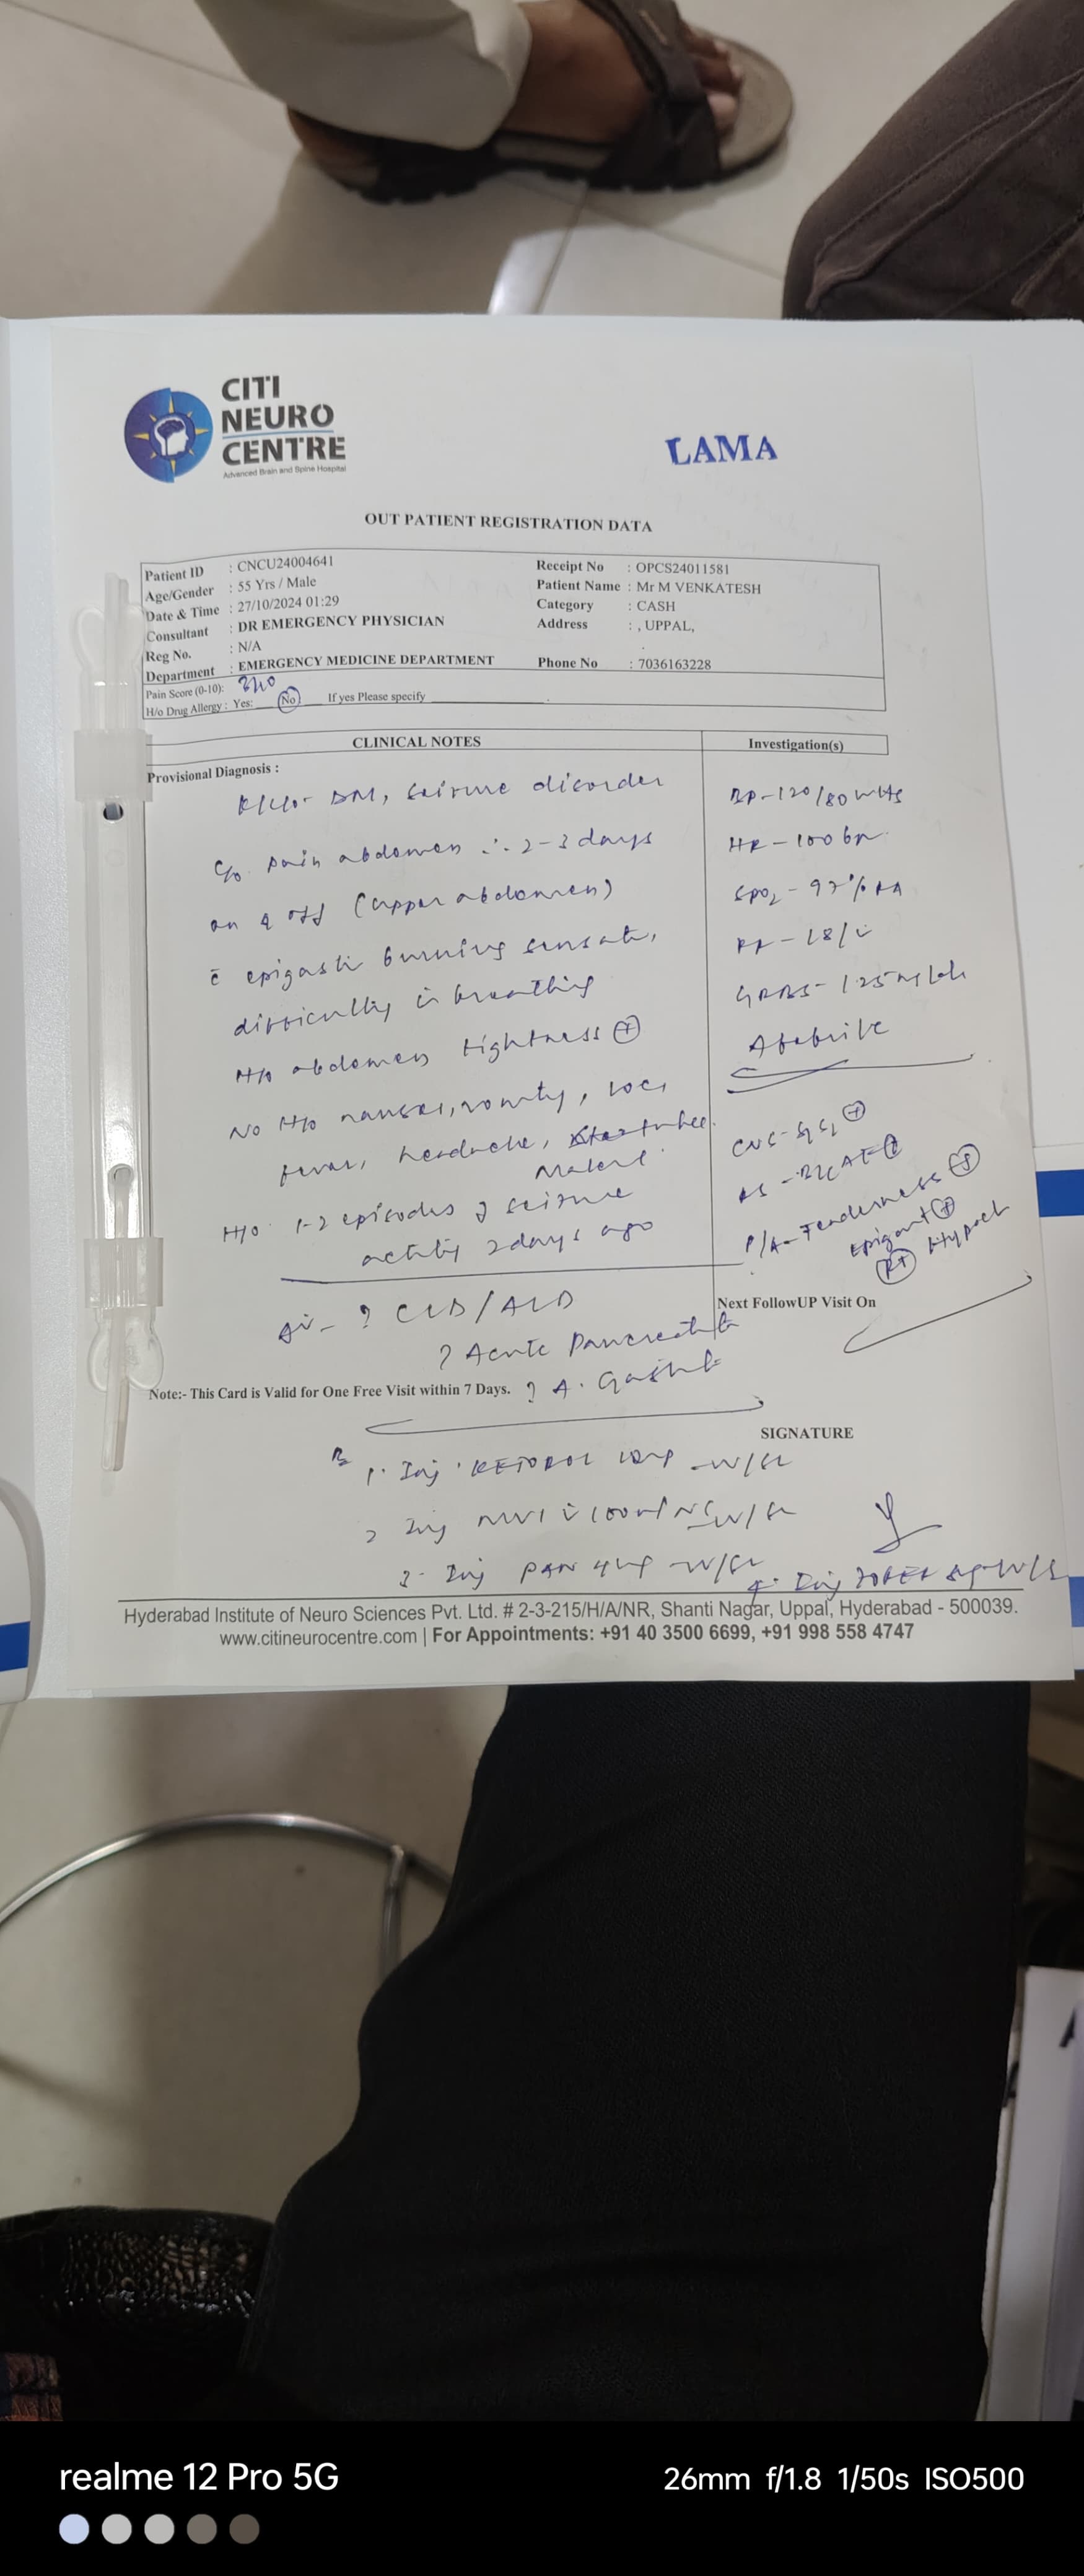 CITI
NEURO
CENTRE
Advanced Brain and Spine Hospital
LAMA
OUT PATIENT REGISTRATION DATA
Patient ID : CNCU24004641
Age/Gender : 55 Yrs / Male
Date & Time : 27/10/2024 01:29
Consultant : DR EMERGENCY PHYSICIAN
Reg No. : N/A
Department : EMERGENCY MEDICINE DEPARTMENT
Receipt No : OPCS24011581
Patient Name : Mr M VENKATESH
Category : CASH
Address : , UPPAL,
Phone No : 7036163228
Pain Score (0-10):
H/o Drug Allergy : Yes: No If yes Please specify
CLINICAL NOTES
Provisional Diagnosis :
DM, seizure disorder
c/o pain abdomen ∴ 2-3 days
on & off (upper abdomen)
c̄ epigastic burning sensat,
difficulty in breathing
H/o abdomen tightness (+)
No H/o nausea, vomity, LOC,
fever, headache,
H/o 1-2 episodes of seizure
activity 2 days ago
? CLD/ALD
? Acute Pancreatit
? A. Gastrit
Investigation(s)
BP-120/80
HR-100 bp
SpO2-97% RA
RR-18/
GRBS-125 mg/dl
Afebrile
CVS-S1S2 (+)
RS-BLAE (+)
P/A-Tenderness (+)
Epigast (+)
(Rt) Hypoch
Next FollowUP Visit On
Note:- This Card is Valid for One Free Visit within 7 Days.
SIGNATURE
1. Inj KETOROL
2 Inj MVI c̄ 100ml NS
3. Inj PAN 40
4. Inj ZOFER
Hyderabad Institute of Neuro Sciences Pvt. Ltd. # 2-3-215/H/A/NR, Shanti Nagar, Uppal, Hyderabad - 500039.
www.citineurocentre.com | For Appointments: +91 40 3500 6699, +91 998 558 4747
realme 12 Pro 5G
26mm f/1.8 1/50s ISO500